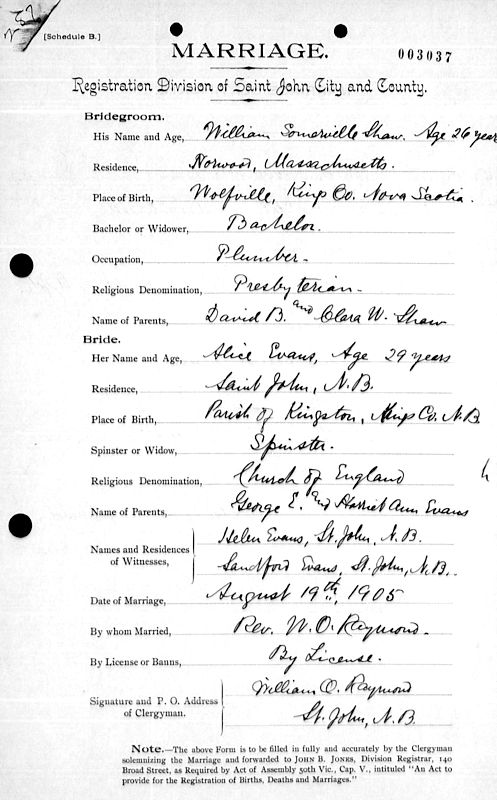 [Schedule B.]
MARRIAGE. 003037
Registration Division of Saint John City and County.
Bridegroom.
His Name and Age, William Somerville Shaw. Age 26 years
Residence, Norwood, Massachusetts.
Place of Birth, Wolfville, Kings Co. Nova Scotia.
Bachelor or Widower, Bachelor.
Occupation, Plumber.
Religious Denomination, Presbyterian.
Name of Parents, David B. and Clara W. Shaw
Bride.
Her Name and Age, Alice Evans, Age 29 years
Residence, Saint John, N.B.
Place of Birth, Parish of Kingston, Kings Co. N.B.
Spinster or Widow, Spinster.
Religious Denomination, Church of England
Name of Parents, George E. and Harriet Ann Evans
Names and Residences of Witnesses, Helen Evans, St. John, N.B.
Sandford Evans, St. John, N.B.
Date of Marriage, August 19th, 1905
By whom Married, Rev. W. O. Raymond.
By License or Banns, By License.
Signature and P. O. Address of Clergyman. William O. Raymond
St. John, N.B
Note.—The above Form is to be filled in fully and accurately by the Clergyman
solemnizing the Marriage and forwarded to JOHN B. JONES, Division Registrar, 140
Broad Street, as Required by Act of Assembly 50th Vic., Cap. V., intituled "An Act to
provide for the Registration of Births, Deaths and Marriages."